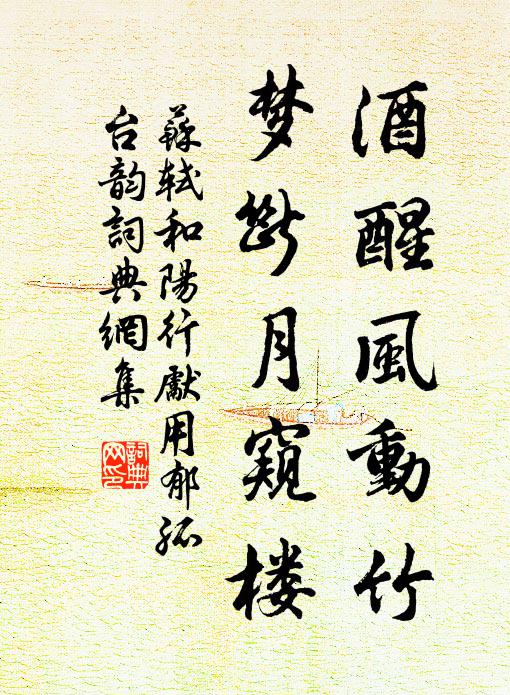 酒醒風動竹
梦斷月窺楼
蘇軾和陽行獻用郁孤
台韵詞典網集
詞典
网印